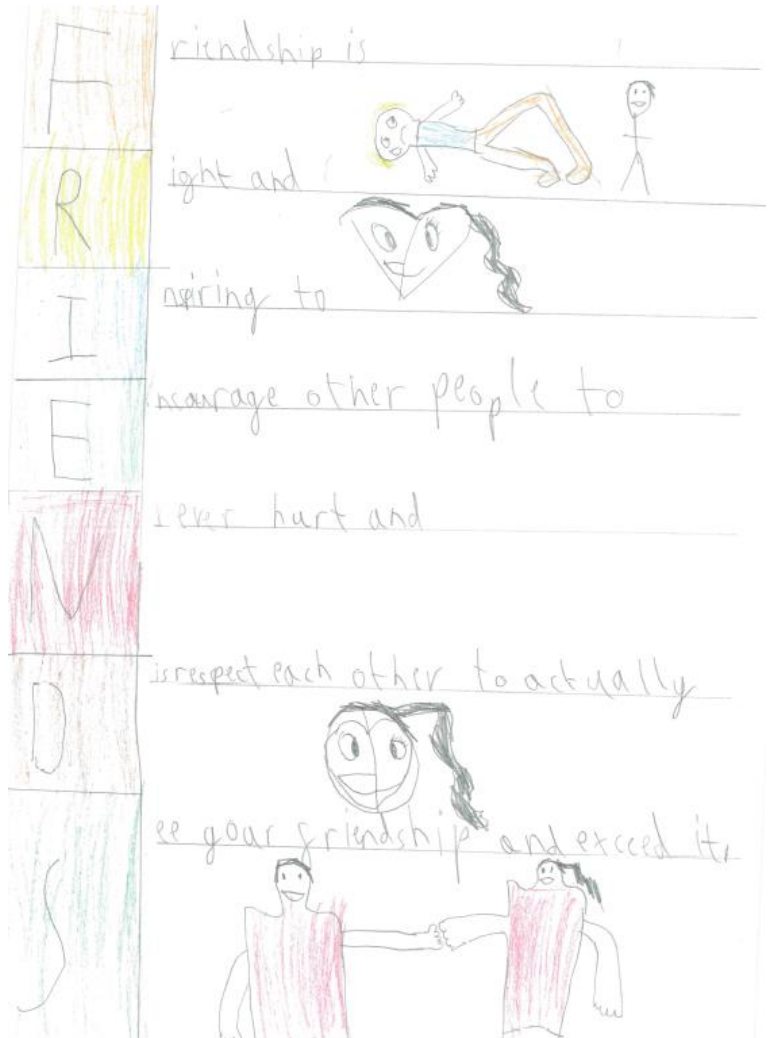 Friendship is
Right and
Inspiring to
Encourage other people to
Never hurt and
Disrespect each other to actually
See your friendship and exceed it.